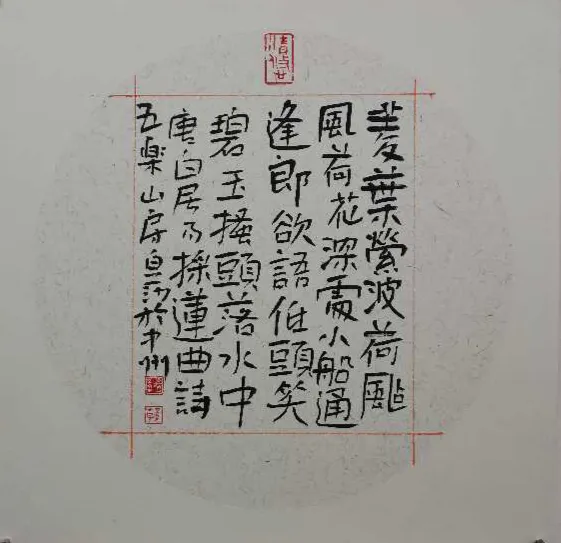 菱葉縈波荷颭
風荷花深處小船通
逢郎欲語低頭笑
碧玉搔頭落水中
唐白居易採蓮曲詩
五樂山房於中州